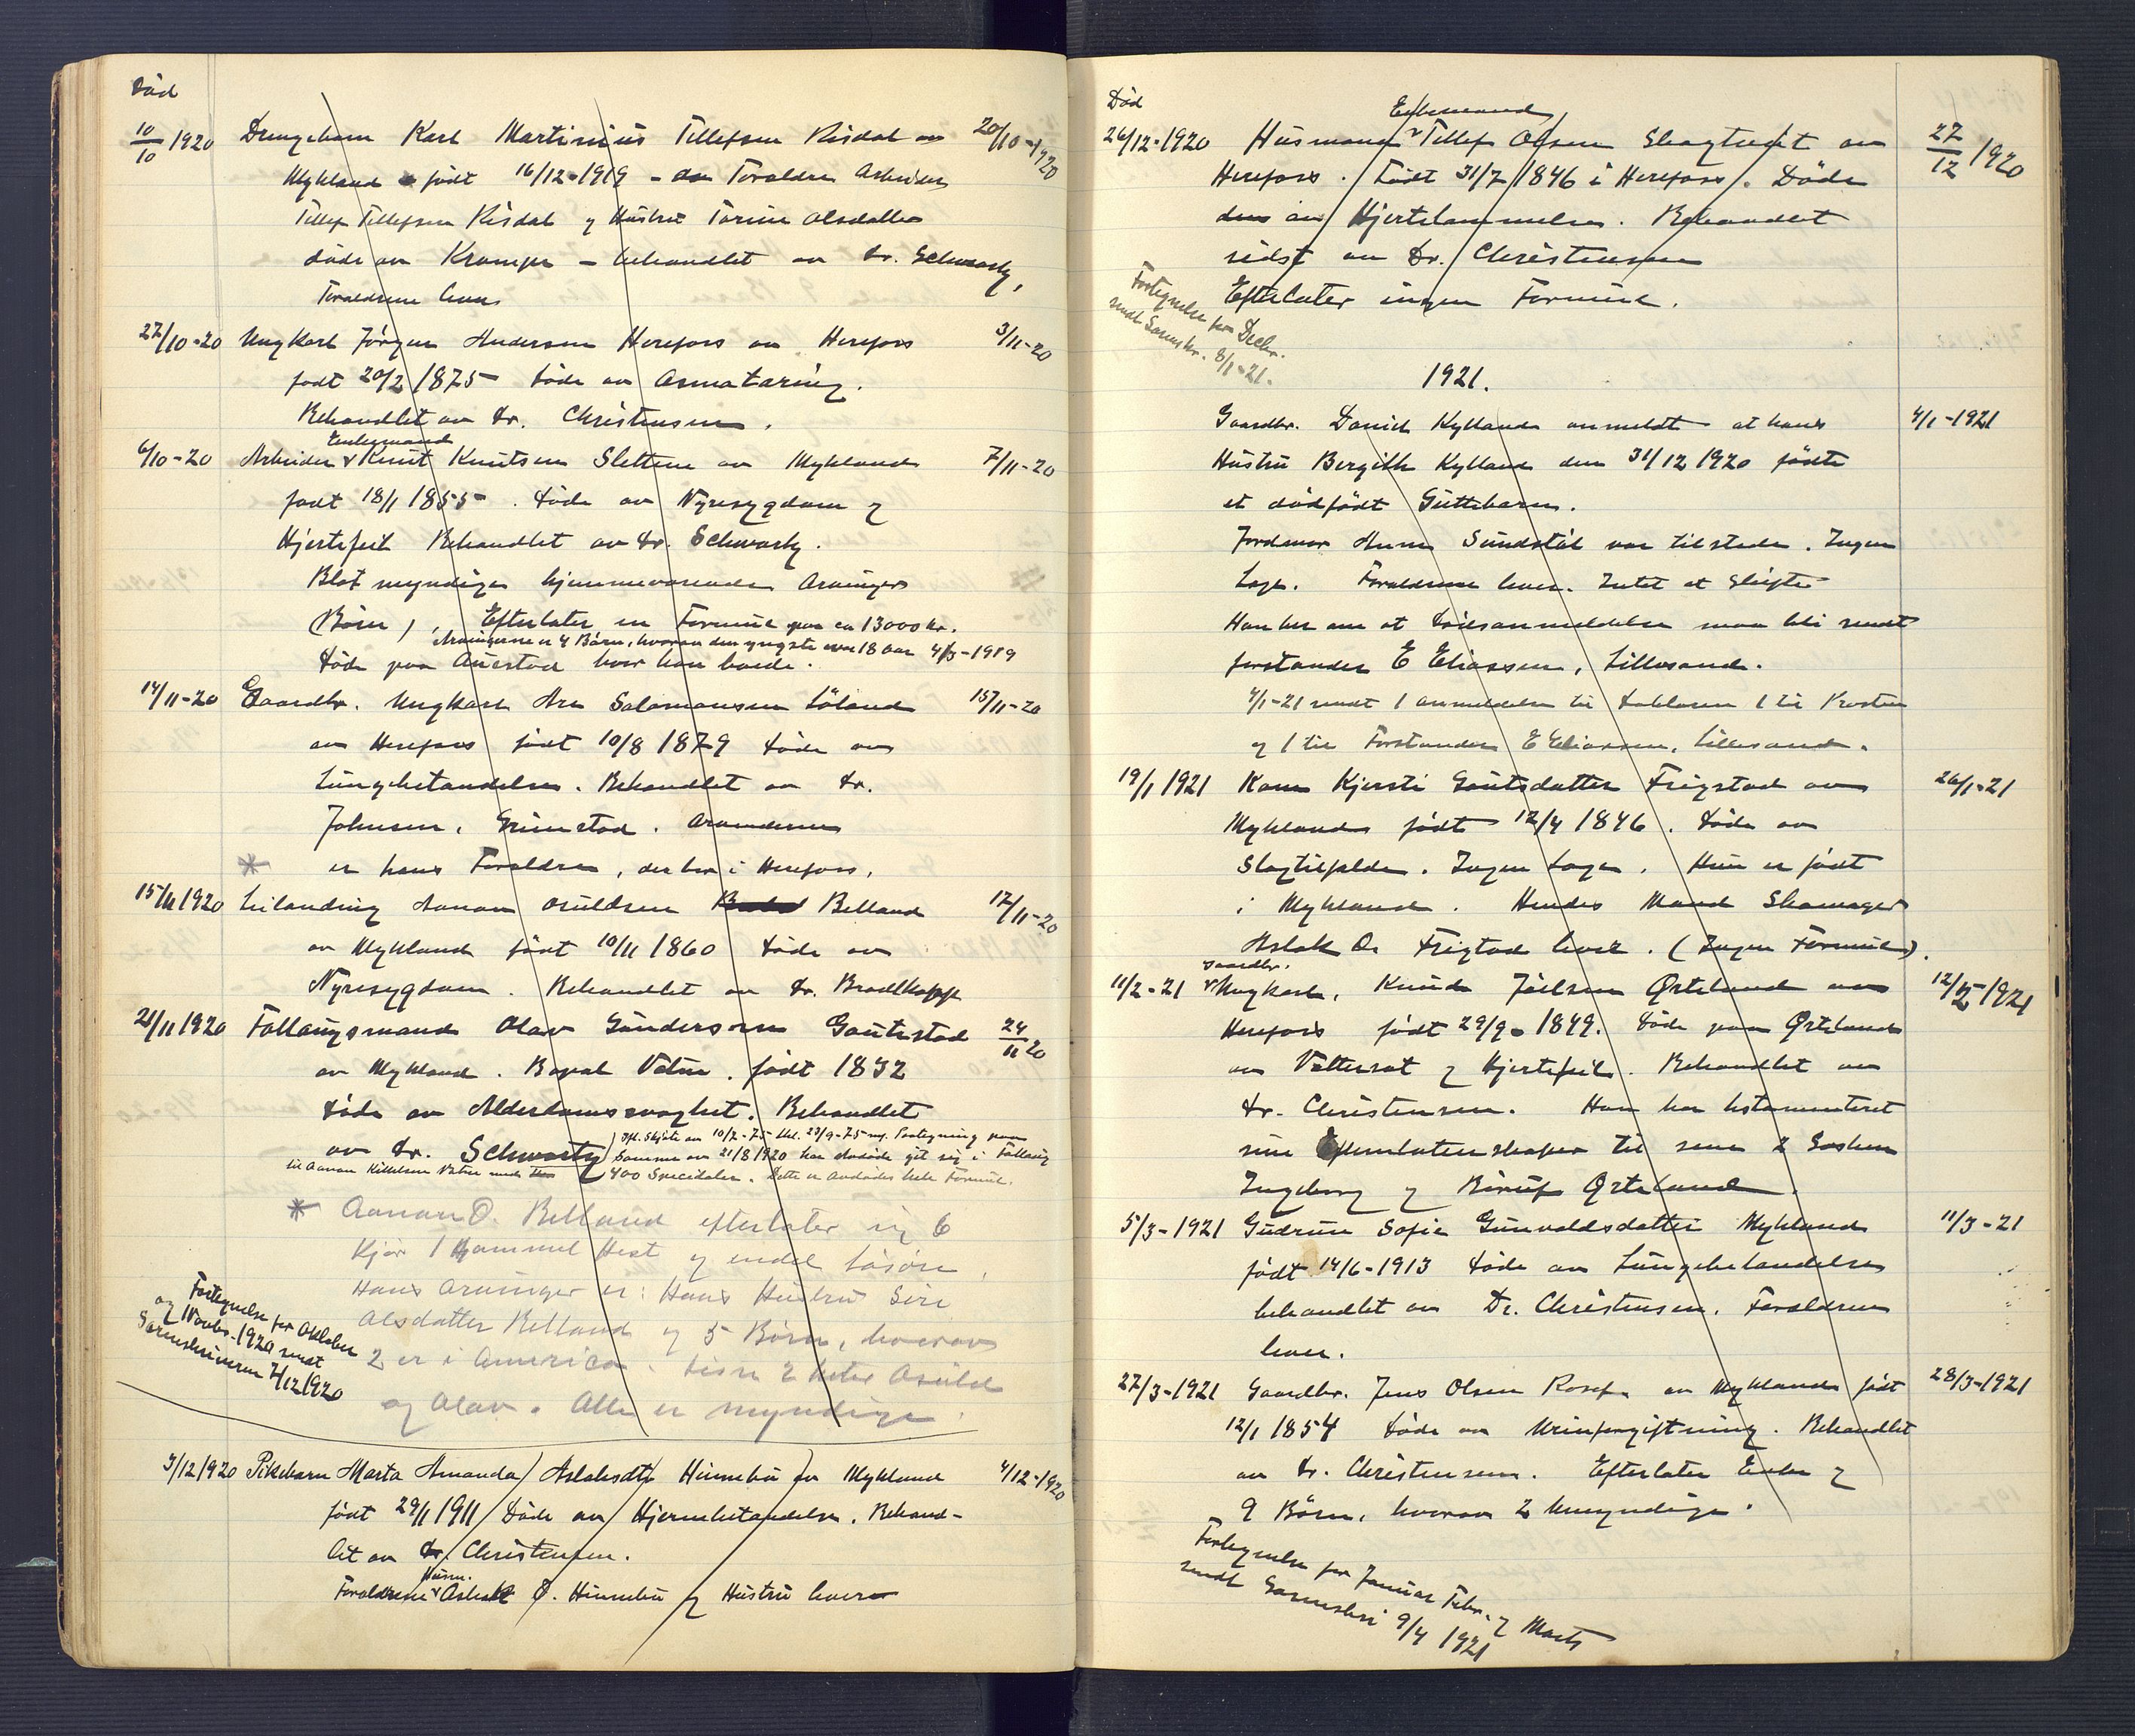 Död
10/10 1920 Drengebarn Karl Martinius Tellefsen Risdal av 20/10-1920
Mykland født 16/12-1919 - Foraldre Arbeider
Tellef Tellefsen Risdal og Hustru Torine Olsdatter
döde av Kramper - behandlet av Dr. Schwartz,
Foraldrene lever
27/10-20 Ungkarl Jörgen Andersen Herefoss av Herefoss 3/11-20
født 20/2 1875 döde av
Behandlet av Dr. Christensen.
Enkemand
6/10-20 Arbeider v Knut Knutsen Slettene av Mykland 7/11-20
født 18/1 1855. Döde av Nyresygdom og
Hjertefeil Behandlet av Dr. Schwartz.
Blot myndige hjemmeværende Arvinger
(Börn), Efterlater en Formue paa ca 13000 kr.
Arvingerne er 4 Börn, hvorav den yngste over 18 aar 4/3-1919
Döde paa Auestad hvor han boede.
14/11-20 Gaardbr. Ungkarl Are Salamonsen Löland 15/11-20
av Herefoss född 10/8 1879 döde av
Lungebetændelse. Behandlet av Dr.
Johnsen, Grimstad. Arvingerne
* er hans Foraldre, der bor i Herefoss.
15/11 1920 Leilending Aanon Osuldsen Belland 17/11-20
av Mykland född 10/11 1860 döde av
Nyresygdom. Behandlet av Dr. Brodtkopp
21/11 1920 Follaugsmand Olav Gunderson Gautestad 24/11 20
av Mykland. Bopæl Vatne. født 1832
Döde av Alderdomssvaghet. Behandlet
av Dr. Schwartz Ifl. Skjöte av 10/7-75 tnl. 23/9-75 m. Paategning paa
samme av 21/8 1920 har avdöde git sig i Follaug
til Aanon Killelsen Vatne med 400 Specidaler. Dette er avdödes hele Formue.
* Aanon O. Belland efterlater sig 6
Kjör 1 gammel Hest og endel Lösöre,
Hans Arvinger er: Hans Hustru Siri
Olsdatter Belland og 5 Börn, hvorav
2 er i America. Disse 2 heter Osuld
og Olav. Alle er myndige.
Fortegnelse for Oktober
og Novbr. 1920 sendt
Sorenskriveren 7/12 1920
3/12 1920 Pikebarn Marta Amanda Aslaksdtr Hinnebu fra Mykland 4/12-1920
født 29/1 1911 Döde av Hjernebetændelse. Behand-
let av Dr. Christensen.
Husm.
Foraldrene v Aslak O. Hinnebu og Hustru lever
Död
Enkemand
26/12-1920 Husmand v Tellef Olsen Slagtveit av 27/12 1920
Herefoss. Født 31/7 1846 i Herefoss. Döde
den av Hjertelammelse. Behandlet
sidst av Dr. Christensen
Efterlater ingen Formue.
Fortegnelse for Decbr.
sendt Sorenskr. 8/1-21.
1921.
Gaardbr. Daniel Kylland anmeldt at hans 4/1-1921
Hustru Bergith Kylland den 31/12 1920 födte
et dödfödt Guttebarn.
Jordmor Anne Sundstöl var tilstede. Ingen
Læge. Foraldrene lever. Intet at skifte
Han ber om at Dödsanmeldelse maa bli sendt
forstander E Eliassen, Lillesand.
4/1-21 sendt 1 anmeldelse til Doktoren 1 til Presten
og 1 til Forstander E Eliassen, Lillesand.
19/1 1921 Kone Kjersti Gautsdatter Frigstad av 26/1-21
Mykland född 12/4 1846. Döde av
Slagtilfelde. Ingen Læge. Hun er född
i Mykland. Hendes Mand Skomager
Aslak Os Frigstad lever. (Ingen Formue).
Gaardbr.
11/2-21 v Ungkarl, Knud Joelsen Örteland av 12/2-1921
Herefoss född 29/9-1849. Döde paa Örteland
av Vattersot og Hjertefeil. Behandlet av
Dr. Christensen. Han har testamenteret
sine Efterlatenskaper til sine 2 Søsken
Ingeborg og Örteland.
5/3-1921 Gudrun Sofie Gunvaldsdatter Mykland 11/3-21
født 14/6-1913 Döde av Lungebetændelse
behandlet av Dr. Christensen. Foraldrene
lever.
27/3-1921 Gaardbr. Jens Olsen Rosef. av Mykland född 28/3-1921
12/1 1854 Döde av Urinforgiftning. Behandlet
av Dr. Christensen. Efterlater Enke og
9 Börn, hvorav 2 Umyndige.
Fortegnelse for Januar Febr. og Marts
sendt Sorenskri 9/4 1921